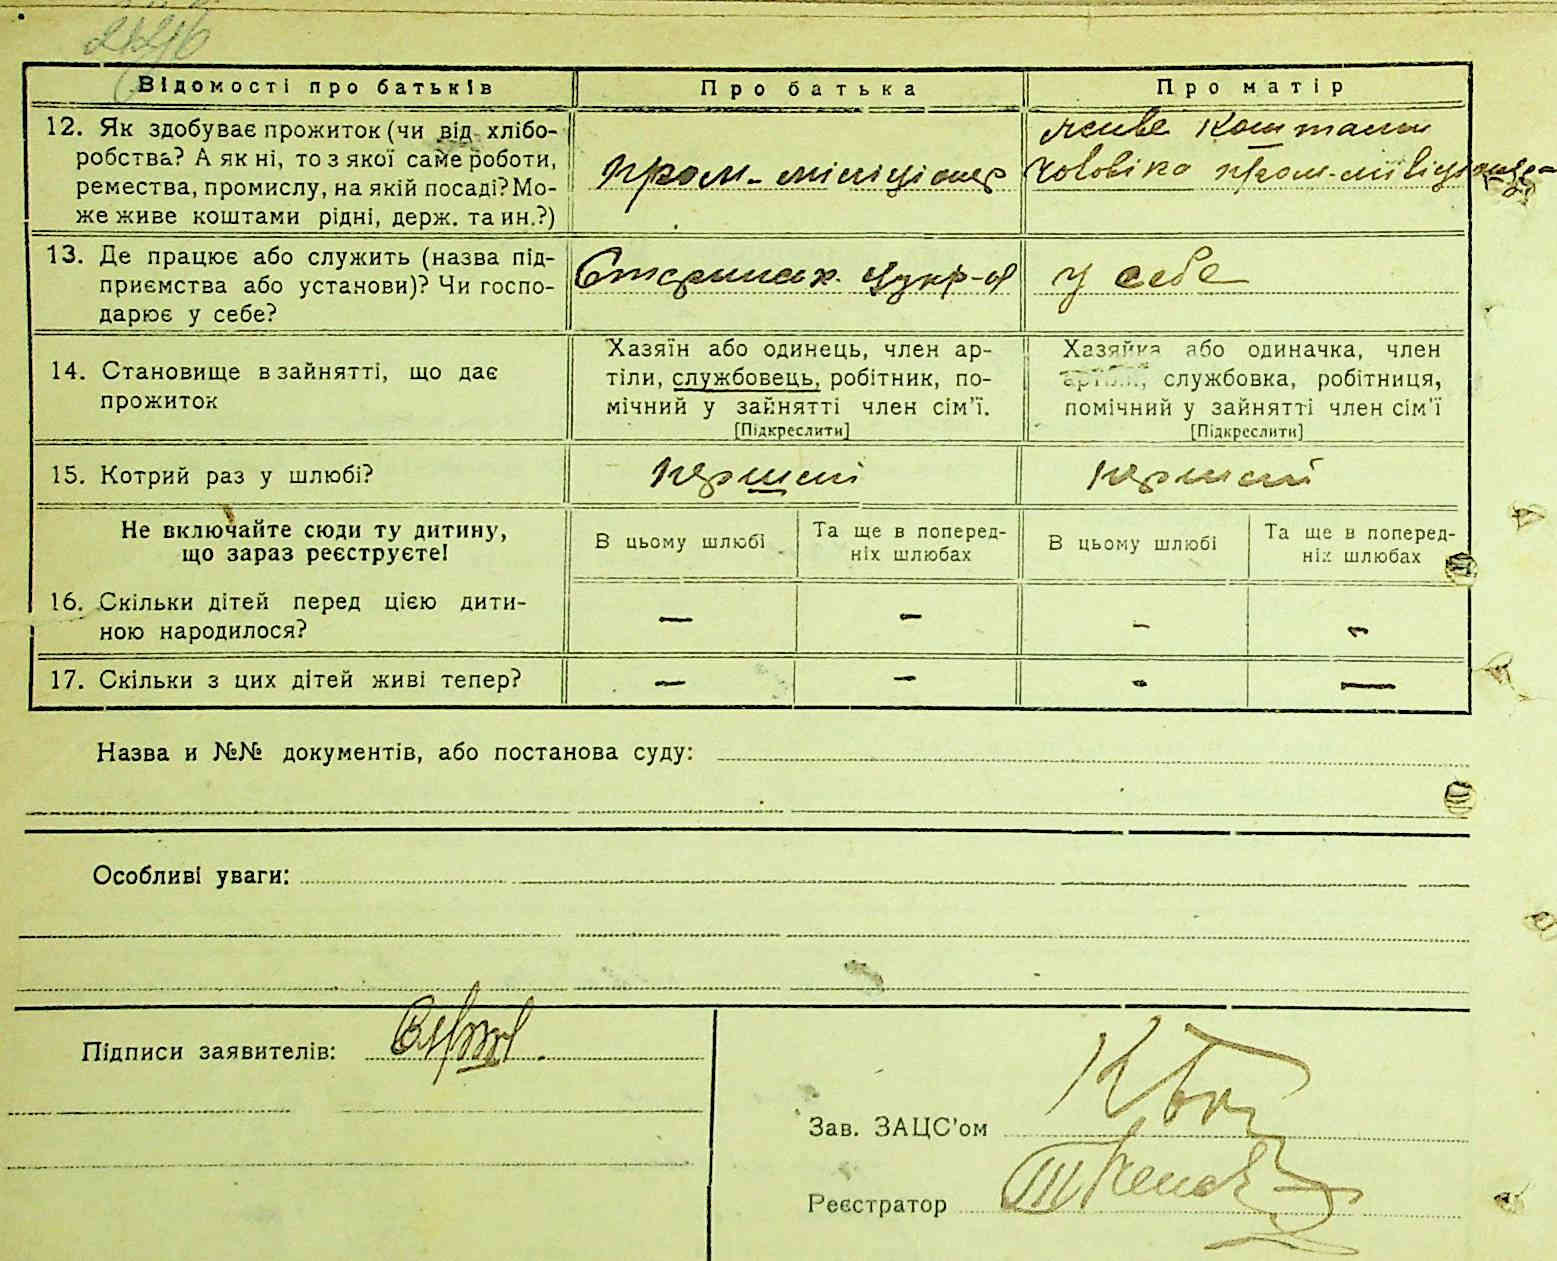 Відомості про батьків
Про батька
Про матір
12. Як здобуває прожиток (чи від хлібо-
робства? А як ні, то з якої саме роботи,
ремества, промислу, на якій посаді? Мо-
же живе коштами рідні, держ. та ин.?)
пром-міліціонер
живе коштами
чоловіка пром-міліціонера
13. Де працює або служить (назва під-
приємства або установи)? Чи госпо-
дарює у себе?
цукр-я
у себе
14. Становище в зайнятті, що дає
прожиток
Хазяїн або одинець, член ар-
тіли, службовець, робітник, по-
мічний у зайнятті член сім'ї.
[Підкреслити]
Хазяйка або одиначка, член
артіли, службовка, робітниця,
помічний у зайнятті член сім'ї
[Підкреслити]
15. Котрий раз у шлюбі?
перший
перший
Не включайте сюди ту дитину,
що зараз реєструєте!
В цьому шлюбі
Та ще в поперед-
ніх шлюбах
В цьому шлюбі
Та ще в поперед-
ніх шлюбах
16. Скільки дітей перед цією дити-
ною народилося?
— — - -
17. Скільки з цих дітей живі тепер?
— — - —
Назва и №№ документів, або постанова суду:
Особливі уваги:
Підписи заявителів:
Зав. ЗАЦС'ом
Реєстратор